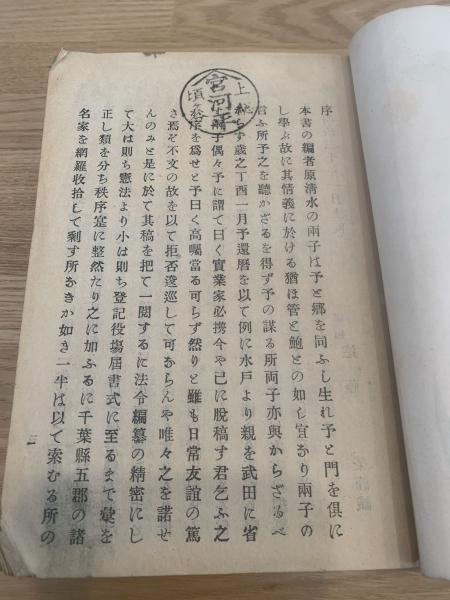 序
本書の編者原淸水の兩子は予と鄕を同ふし生れ予と門を倶に
し學ぶ故に其情義に於ける猶ほ管と鮑との如し宜なり兩子の
言ふ所予之を聽かざるを得ず予の謀る所兩子亦與からざるべ
からず歲之丁酉一月予還曆を以て例に水戸より親を武田に省
す兩子偶々予に謂て曰く實業家必携今や已に脫稿す君乞ふ之
が序を爲せと予曰く高囑當る可らず然りと雖も日常友誼の篤
き焉ぞ不文の故を以て拒否逡巡して可ならんや唯々之を諾せ
んのみと是に於て其稿を把て一閱するに法令編纂の精密にし
て大は則ち憲法より小は則ち登記役塲屆書式に至るまで彙を
正し類を分ち秩序寔に整然たり之に加ふるに千葉縣五郡の諸
名家を網羅收拾して剩す所なきか如き一半は以て索むる所の
上
宮河
頃